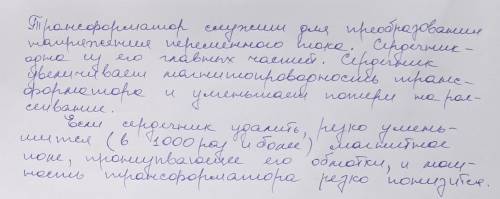 Трансформатор служит для преобразования
напряжения переменного тока. Сердечник -
одна из его главных частей. Сердечник
увеличивает магнитопроводность транс-
форматора и уменьшает потери на рас-
сеивание.
Если сердечник удалить, резко умень-
шится (в 1000 раз и более) магнитное
поле, пронизывающее его обмотки, и мощ-
ность трансформатора резко понизится.